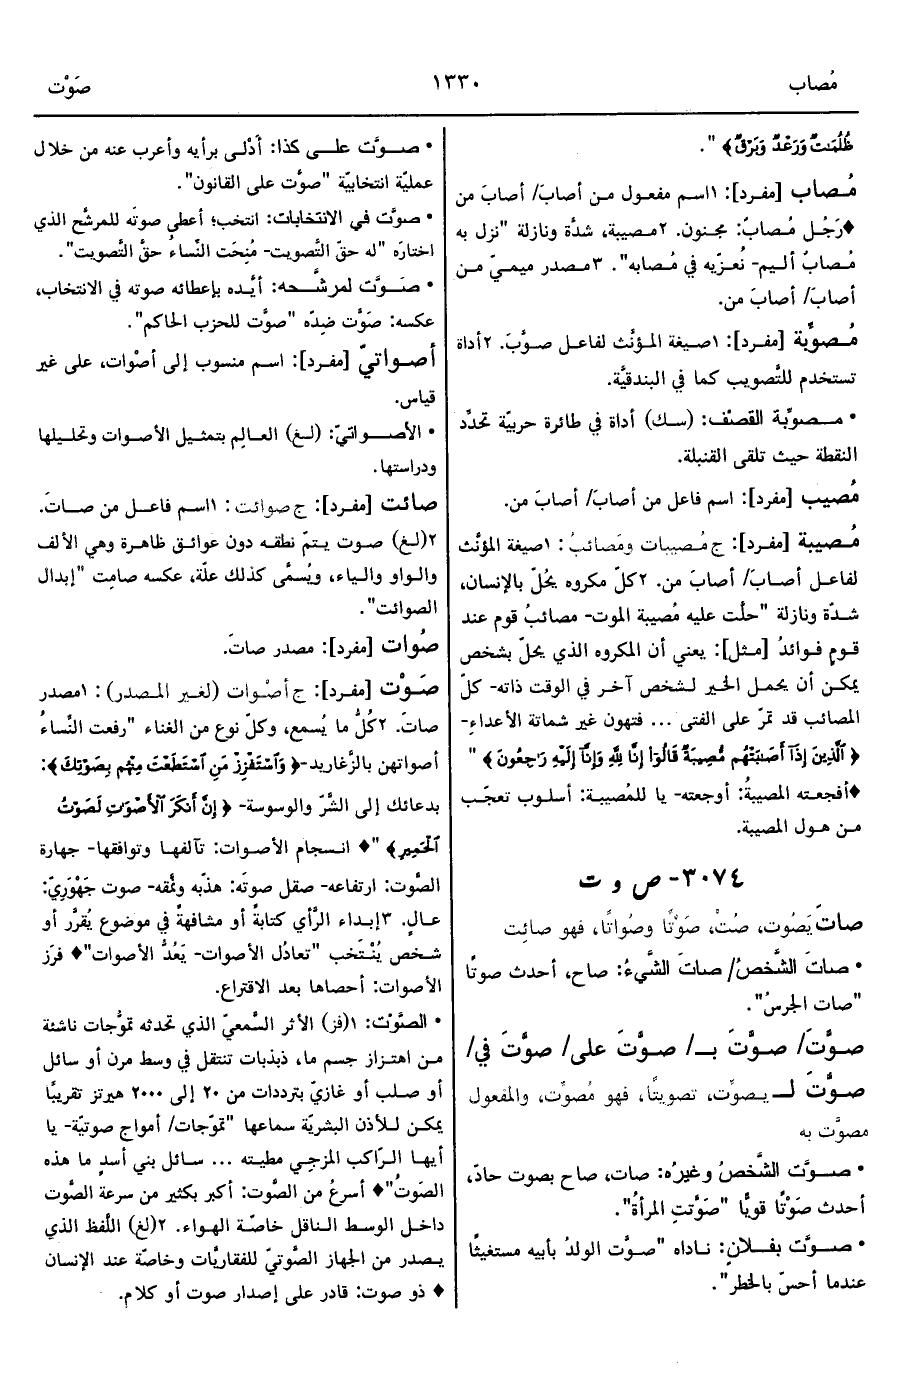 مُصاب
١٣٣٠
صَوْت
ظُلُمَٰتٌ وَرَعْدٌ وَبَرْقٌ﴾ ".
مُصاب [مفرد]: ١اسم مفعول من أصابَ/ أصابَ من
♦رَجُل مُصابٌ: مجنون. ٢مصيبة، شدَّة ونازلة "نزل به
مُصابٌ أليم- نُعزّيه في مُصابه". ٣مصدر ميميّ من
أصابَ/ أصابَ من.
مُصوِّبة [مفرد]: ١صيغة المؤنَّث لفاعل صوَّبَ. ٢أداة
تستخدم للتَّصويب كما في البندقيَّة.
• مصوِّبة القصْف: (سك) أداة في طائرة حربيّة تحدِّد
النقطة حيث تلقى القنبلة.
مُصيب [مفرد]: اسم فاعل من أصابَ/ أصابَ من.
مُصيبة [مفرد]: ج مُصيبات ومَصائبُ: ١صيغة المؤنَّث
لفاعل أصابَ/ أصابَ من. ٢كلّ مكروه يحُلّ بالإنسان،
شدّة ونازلة "حلَّت عليه مُصيبة الموت- مصائبُ قوم عند
قوم فوائدُ [مثل]: يعني أن المكروه الذي يحلّ بشخص
يمكن أن يحمل الخير لشخص آخر في الوقت ذاته- كلّ
المصائب قد تمرّ على الفتى ... فتهون غير شماتة الأعداءِ-
﴿ ٱلَّذِينَ إِذَآ أَصَٰبَتْهُم مُّصِيبَةٌ قَالُوٓا۟ إِنَّا لِلَّهِ وَإِنَّآ إِلَيْهِ رَٰجِعُونَ ﴾ "
♦أفجعته المصيبةُ: أوجعته- يا للمُصيبة: أسلوب تعجّب
من هول المصيبة.
٣٠٧٤- ص و ت
صاتَ يَصُوت، صُتْ، صَوْتًا وصُواتًا، فهو صائِت
• صاتَ الشَّخصُ/ صاتَ الشَّيءُ: صاح، أحدث صوتًا
"صات الجرسُ".
صوَّتَ/ صوَّتَ بـ/ صوَّتَ على/ صوَّتَ في/
صوَّتَ لـ يصوِّت، تصويتًا، فهو مُصوِّت، والمفعول
مصوَّت به
• صوَّت الشَّخصُ وغيرُه: صات، صاح بصوت حادّ،
أحدث صَوْتًا قويًّا "صَوَّتتِ المرأةُ".
• صوَّت بفلانٍ: ناداه "صوَّت الولدُ بأبيه مستغيثًا
عندما أحسّ بالخطر".
• صوَّت على كذا: أدْلى برأيه وأعرب عنه من خلال
عمليَّة انتخابيَّة "صوَّت على القانون".
• صوَّت في الانتخابات: انتخب؛ أعطى صوتَه للمرشَّح الذي
اختارَه "له حقّ التَّصويت- مُنِحَت النِّساءُ حقّ التَّصويت".
• صَوَّت لمرشَّحه: أيَّده بإعطائه صوته في الانتخاب،
عكسه: صوَّت ضِدّه "صوَّت للحزب الحاكم".
أصواتيّ [مفرد]: اسم منسوب إلى أصْوات، على غير
قياس.
• الأصواتيّ: (لغ) العالِم بتمثيل الأصوات وتحليلها
ودراستها.
صائت [مفرد]: ج صوائت: ١اسم فاعل من صاتَ.
٢(لغ) صوت يتمّ نطقه دون عوائق ظاهرة وهي الألف
والواو والياء، ويُسمَّى كذلك علّة، عكسه صامِت "إبدال
الصوائت".
صُوات [مفرد]: مصدر صاتَ.
صَوْت [مفرد]: ج أصْوات (لغير المصدر): ١مصدر
صاتَ. ٢كُلُّ ما يُسمع، وكلّ نوع من الغناء "رفعت النِّساءُ
أصواتهن بالزَّغاريد-﴿ وَٱسْتَفْزِزْ مَنِ ٱسْتَطَعْتَ مِنْهُم بِصَوْتِكَ ﴾:
بدعائك إلى الشَّرّ والوسوسة- ﴿ إِنَّ أَنكَرَ ٱلْأَصْوَٰتِ لَصَوْتُ
ٱلْحَمِيرِ ﴾ "♦ انسجام الأصوات: تآلفها وتوافقها- جهارة
الصَّوت: ارتفاعه- صقل صوتَه: هذّبه ونمَّقه- صوت جَهْوَرِيّ:
عالٍ. ٣إبداء الرَّأي كتابةً أو مشافهةً في موضوع يُقرَّر أو
شخص يُنْتَخب "تعادُل الأصوات- يَعُدُّ الأصوات"♦ فرَز
الأصوات: أحصاها بعد الاقتراع.
• الصَّوْت: ١(فز) الأثر السَّمعيّ الذي تحدثه تموُّجات ناشئة
من اهتزاز جسم ما، ذبذبات تنتقل في وسط مرن أو سائل
أو صلب أو غازيّ بترددات من ٢٠ إلى ٢٠٠٠ هيرتز تقريبًا
يمكن للأذن البشريَّة سماعها "تموّجات/ أمواج صوتيَّة- يا
أيها الرّاكب المزجي مطيته ... سائل بني أسدٍ ما هذه
الصَوتُ"♦ أسرعُ من الصَّوت: أكبر بكثير من سرعة الصَّوت
داخل الوسط الناقل خاصّة الهواء. ٢(لغ) اللَّفظ الذي
يصدر من الجهاز الصَّوتيّ للفقاريَّات وخاصّة عند الإنسان
♦ ذو صوت: قادر على إصدار صوت أو كلام.